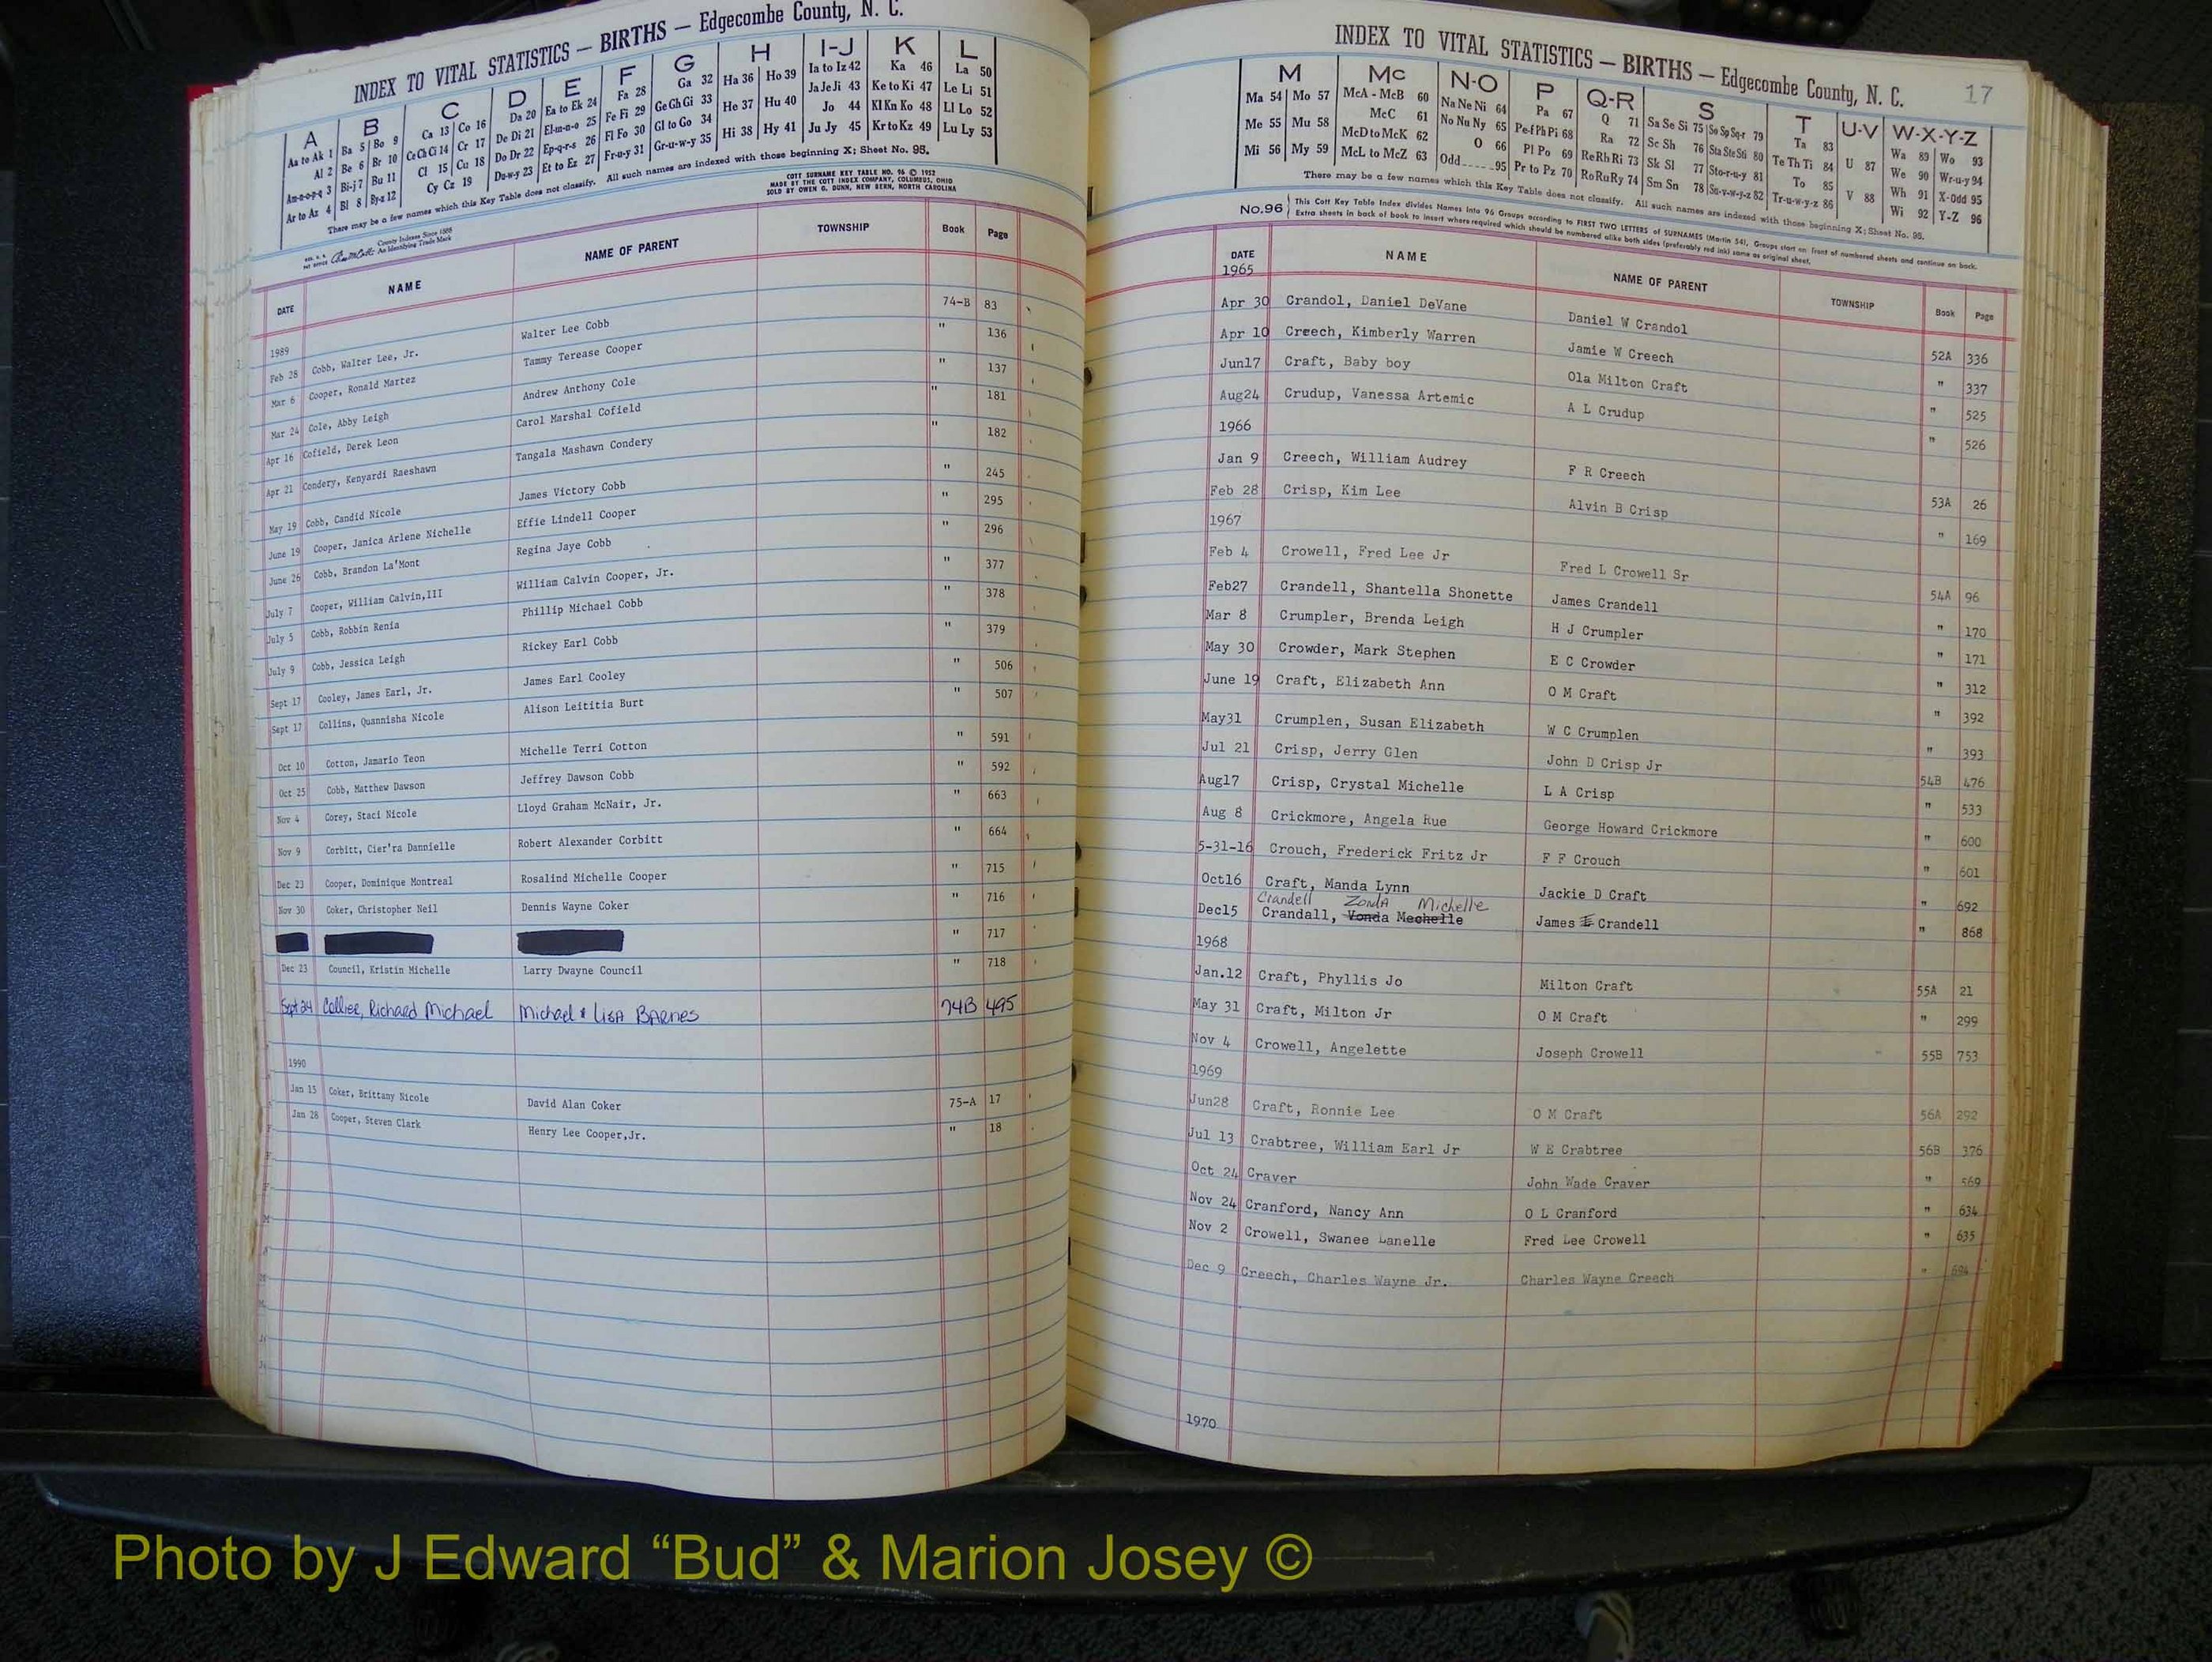 INDEX TO VITAL STATISTICS — BIRTHS — Edgecombe County, N. C.
A B C D E F G H I-J K L
Aa to Ak 1 Ba 5 Bo 9 Ca 13 Co 16 Da 20 Ea to Ek 24 Fa 28 Ga 32 Ha 36 Ho 39 Ia to Iz 42 Ka 46 La 50
Al 2 Be 6 Br 10 Ce Ch Ci 14 Cr 17 De Di 21 El-m-n-o 25 Fe Fi 29 Ge Gh Gi 33 He 37 Hu 40 Ja Je Ji 43 Ke to Ki 47 Le Li 51
Am-n-o-p-q 3 Bi-j 7 Bu 11 Cl 15 Cu 18 Do Dr 22 Ep-q-r-s 26 Fl Fo 30 Gl to Go 34 Hi 38 Hy 41 Jo 44 Kl Kn Ko 48 Ll Lo 52
Ar to Az 4 Bl 8 By-z 12 Cy Cz 19 Du-w-y 23 Et to Ez 27 Fr-u-y 31 Gr-u-w-y 35 Ju Jy 45 Kr to Kz 49 Lu Ly 53
There may be a few names which this Key Table does not classify. All such names are indexed with those beginning X; Sheet No. 95.
COTT SURNAME KEY TABLE NO. 96 © 1952
MADE BY THE COTT INDEX COMPANY, COLUMBUS, OHIO
SOLD BY OWEN G. DUNN, NEW BERN, NORTH CAROLINA
County Indexes Since 1888
An Identifying Trade Mark
DATE NAME NAME OF PARENT TOWNSHIP Book Page
1989
Feb 28 Cobb, Walter Lee, Jr. Walter Lee Cobb 74-B 83
Mar 6 Cooper, Ronald Martez Tammy Terease Cooper " 136
Mar 24 Cole, Abby Leigh Andrew Anthony Cole " 137
Apr 16 Cofield, Derek Leon Carol Marshal Cofield " 181
Apr 21 Condery, Kenyardi Raeshawn Tangala Mashawn Condery " 182
May 19 Cobb, Candid Nicole James Victory Cobb " 245
June 19 Cooper, Janica Arlene Nichelle Effie Lindell Cooper " 295
June 26 Cobb, Brandon La'Mont Regina Jaye Cobb " 296
July 7 Cooper, William Calvin,III William Calvin Cooper, Jr. " 377
July 5 Cobb, Robbin Renia Phillip Michael Cobb " 378
July 9 Cobb, Jessica Leigh Rickey Earl Cobb " 379
Sept 17 Cooley, James Earl, Jr. James Earl Cooley " 506
Sept 17 Collins, Quannisha Nicole Alison Leititia Burt " 507
Oct 10 Cotton, Jamario Teon Michelle Terri Cotton " 591
Oct 25 Cobb, Matthew Dawson Jeffrey Dawson Cobb " 592
Nov 4 Corey, Staci Nicole Lloyd Graham McNair, Jr. " 663
Nov 9 Corbitt, Cier'ra Dannielle Robert Alexander Corbitt " 664
Dec 23 Cooper, Dominique Montreal Rosalind Michelle Cooper " 715
Nov 30 Coker, Christopher Neil Dennis Wayne Coker " 716
" 717
Dec 23 Council, Kristin Michelle Larry Dwayne Council " 718
Sept 24 Collier, Richard Michael Michael & Lisa Barnes 74B 495
1990
Jan 15 Coker, Brittany Nicole David Alan Coker 75-A 17
Jan 28 Cooper, Steven Clark Henry Lee Cooper,Jr. " 18
INDEX TO VITAL STATISTICS — BIRTHS — Edgecombe County, N. C. 17
M Mc N-O P Q-R S T U-V W-X-Y-Z
Ma 54 Mo 57 McA - McB 60 Na Ne Ni 64 Pa 67 Q 71 Sa Se Si 75 So Sp Sq-r 79 Ta 83 U 87 Wa 89 Wo 93
Me 55 Mu 58 McC 61 No Nu Ny 65 Pe-f Ph Pi 68 Ra 72 Sc Sh 76 Sta Ste Sti 80 Te Th Ti 84 V 88 We 90 Wr-u-y 94
Mi 56 My 59 McD to McK 62 O 66 Pl Po 69 Re Rh Ri 73 Sk Sl 77 Sto-r-u-y 81 To 85 Wh 91 X-Odd 95
McL to McZ 63 Odd 95 Pr to Pz 70 Ro Ru Ry 74 Sm Sn 78 Su-v-w-y-z 82 Tr-u-w-y-z 86 Wi 92 Y-Z 96
There may be a few names which this Key Table does not classify. All such names are indexed with those beginning X; Sheet No. 95.
No.96 This Cott Key Table Index divides Names into 96 Groups according to FIRST TWO LETTERS of SURNAMES (Martin 54). Groups start on front of numbered sheets and continue on back.
Extra sheets in back of book to insert where required which should be numbered alike both sides (preferably red ink) same as original sheet.
DATE NAME NAME OF PARENT TOWNSHIP Book Page
1965
Apr 30 Crandol, Daniel DeVane Daniel W Crandol 52A 336
Apr 10 Creech, Kimberly Warren Jamie W Creech " 337
Jun17 Craft, Baby boy Ola Milton Craft " 525
Aug24 Crudup, Vanessa Artemic A L Crudup " 526
1966
Jan 9 Creech, William Audrey F R Creech 53A 26
Feb 28 Crisp, Kim Lee Alvin B Crisp " 169
1967
Feb 4 Crowell, Fred Lee Jr Fred L Crowell Sr 54A 96
Feb27 Crandell, Shantella Shonette James Crandell " 170
Mar 8 Crumpler, Brenda Leigh H J Crumpler " 171
May 30 Crowder, Mark Stephen E C Crowder " 312
June 19 Craft, Elizabeth Ann O M Craft " 392
May31 Crumplen, Susan Elizabeth W C Crumplen " 393
Jul 21 Crisp, Jerry Glen John D Crisp Jr 54B 476
Aug17 Crisp, Crystal Michelle L A Crisp " 533
Aug 8 Crickmore, Angela Rue George Howard Crickmore " 600
5-31-16 Crouch, Frederick Fritz Jr F F Crouch " 601
Oct16 Craft, Manda Lynn Jackie D Craft " 692
Crandell Zonda Michelle
Dec15 Crandall, Vonda Mechelle James E Crandell " 868
1968
Jan.12 Craft, Phyllis Jo Milton Craft 55A 21
May 31 Craft, Milton Jr O M Craft " 299
Nov 4 Crowell, Angelette Joseph Crowell 55B 753
1969
Jun28 Craft, Ronnie Lee O M Craft 56A 292
Jul 13 Crabtree, William Earl Jr W E Crabtree 56B 376
Oct 24 Craver John Wade Craver " 569
Nov 24 Cranford, Nancy Ann O L Cranford " 634
Nov 2 Crowell, Swanee Lanelle Fred Lee Crowell " 635
Dec 9 Creech, Charles Wayne Jr. Charles Wayne Creech " 694
1970
Photo by J Edward “Bud” & Marion Josey ©